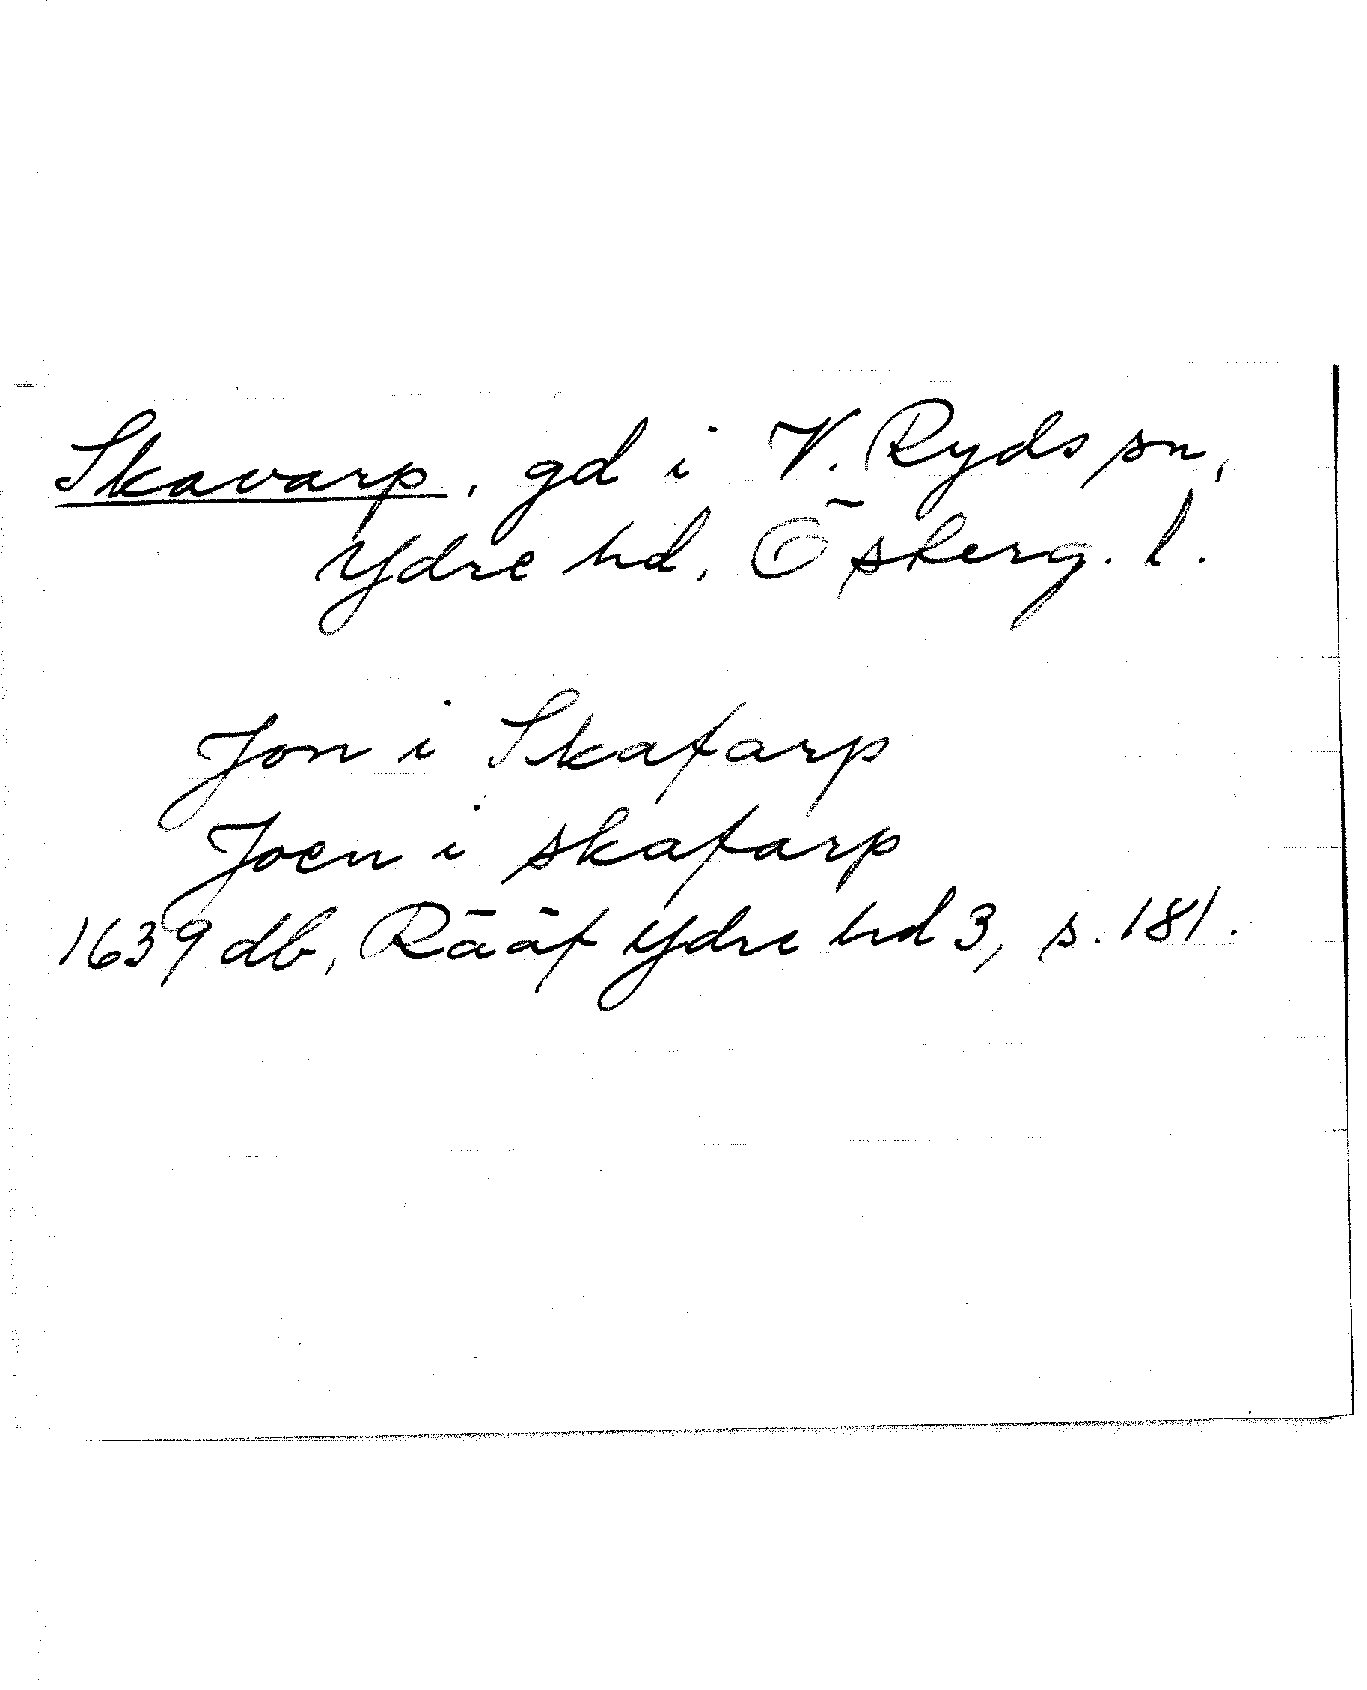 Skavarp, gd i V. Ryds sn,
Ydre hd, Österg. l.
Jon i Skafarp
Joen i skafarp
1639 db, Rääf Ydre hd 3, s. 181.